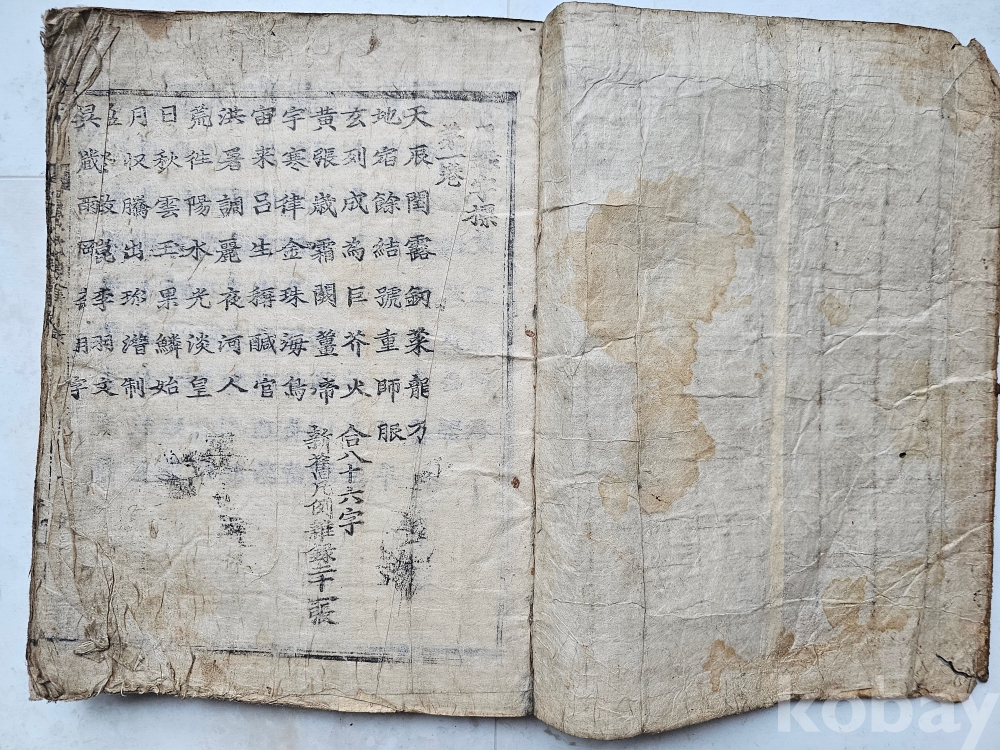 字標
第一卷
天辰閏露釰菜龍乃
地宿餘結號重師服
玄列成為巨芥火 合八十六字
黃張歲霜闕薑帝 新舊凡例雜錄二十一張
宇寒律金珠海鳥
宙来呂生稱鹹官
洪暑調麗夜河人
荒徃陽水光淡皇
日秋雲玉果鱗始
月収騰出珍潛制
致崑李羽文
昃蔵雨岡字
kobay